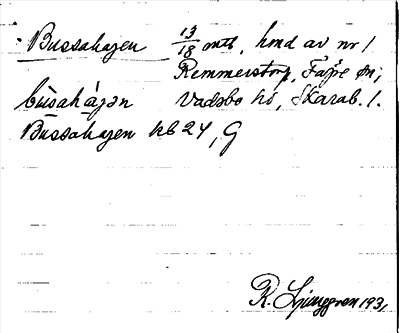 Bussahagen 13/18 mtl, hmd av nr 1
Remmerstorp, Fägre sn,
bùsahágən Vadsbo hd, Skarab. l.
Bussahagen hb 24, G
R. Ljunggren 193